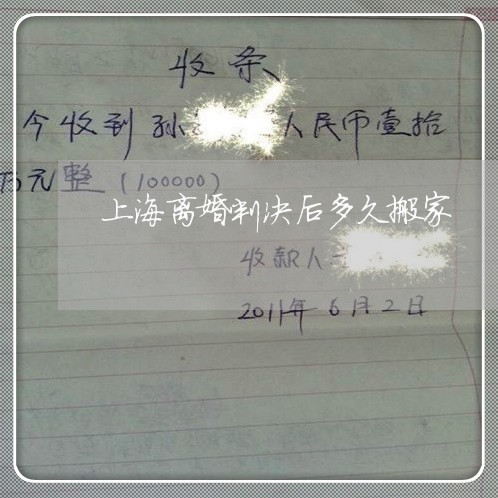 收条
今收到孙 人民币壹拾
万元整(100000)
上海离婚判决后多久搬家
收款人
2011年6月2日